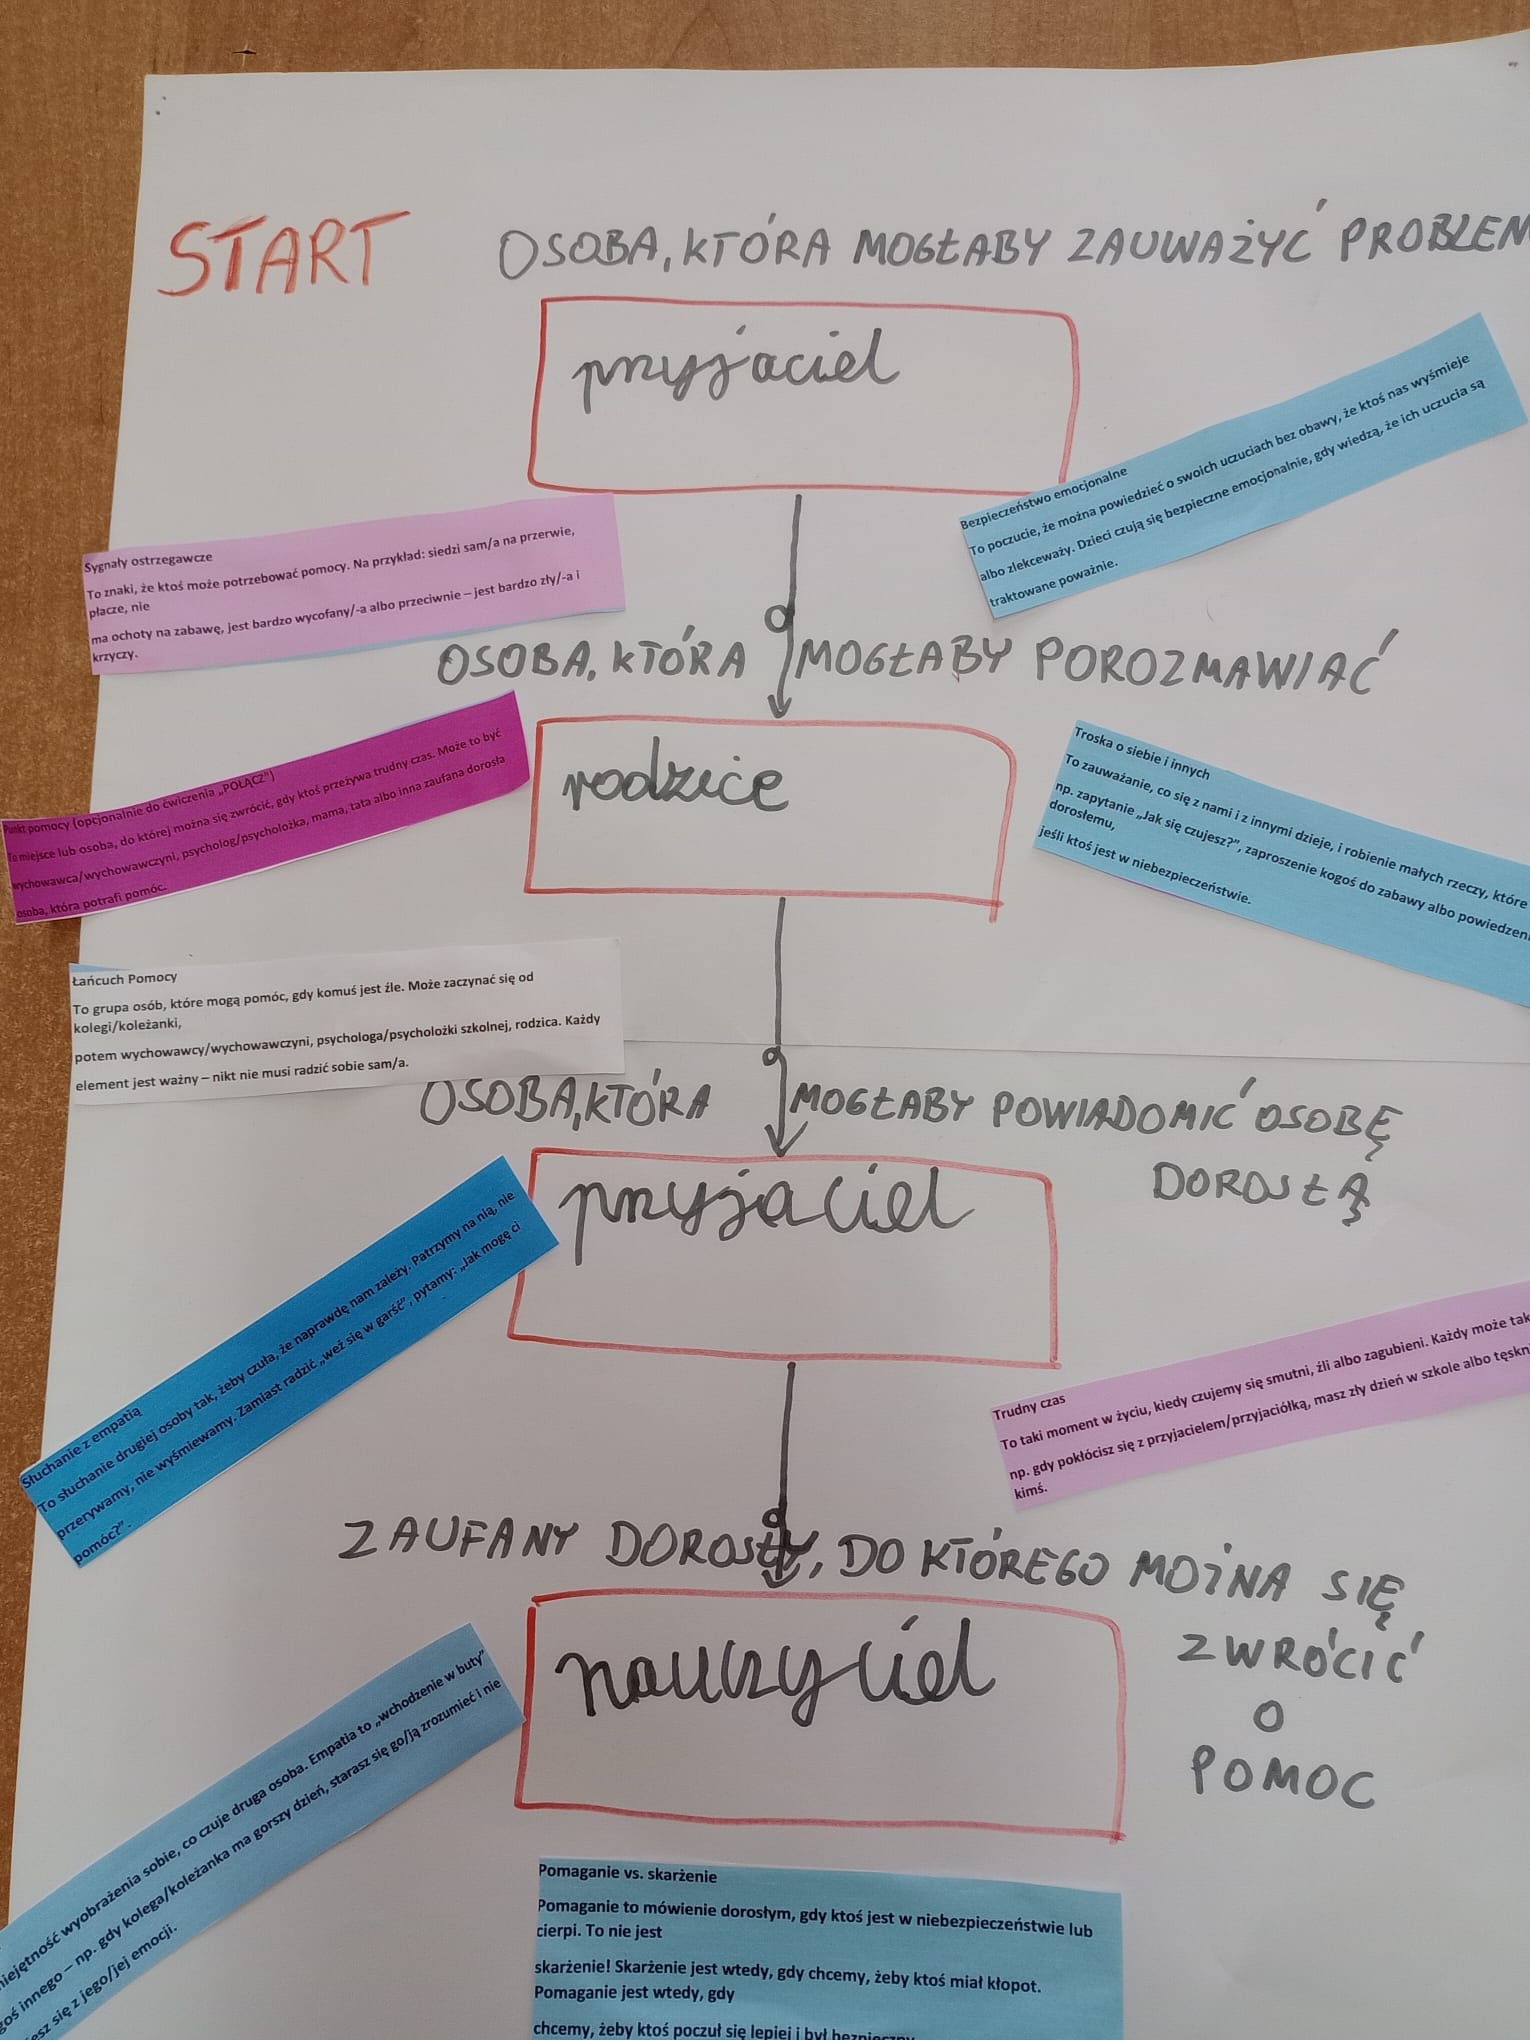 START
OSOBA, KTÓRA MOGŁABY ZAUWAŻYĆ PROBLEM
przyjaciel
Bezpieczeństwo emocjonalne
To poczucie, że można powiedzieć o swoich uczuciach bez obawy, że ktoś nas wyśmieje
albo zlekceważy. Dzieci czują się bezpieczne emocjonalnie, gdy wiedzą, że ich uczucia są
traktowane poważnie.
Sygnały ostrzegawcze
To znaki, że ktoś może potrzebować pomocy. Na przykład: siedzi sam/a na przerwie,
płacze, nie
ma ochoty na zabawę, jest bardzo wycofany/-a albo przeciwnie – jest bardzo zły/-a i
krzyczy.
OSOBA, KTÓRA MOGŁABY POROZMAWIAĆ
rodzice
Punkt pomocy (opcjonalnie do ćwiczenia „POŁĄCZ”)
To miejsce lub osoba, do której można się zwrócić, gdy ktoś przeżywa trudny czas. Może to być
wychowawca/wychowawczyni, psycholog/psycholożka, mama, tata albo inna zaufana dorosła
osoba, która potrafi pomóc.
Troska o siebie i innych
To zauważanie, co się z nami i z innymi dzieje, i robienie małych rzeczy, które
np. zapytanie „Jak się czujesz?”, zaproszenie kogoś do zabawy albo powiedzeni
dorosłemu,
jeśli ktoś jest w niebezpieczeństwie.
Łańcuch Pomocy
To grupa osób, które mogą pomóc, gdy komuś jest źle. Może zaczynać się od
kolegi/koleżanki,
potem wychowawcy/wychowawczyni, psychologa/psycholożki szkolnej, rodzica. Każdy
element jest ważny – nikt nie musi radzić sobie sam/a.
OSOBA, KTÓRA MOGŁABY POWIADOMIĆ OSOBĘ
DOROSŁĄ
przyjaciel
Słuchanie z empatią
To słuchanie drugiej osoby tak, żeby czuła, że naprawdę nam zależy. Patrzymy na nią, nie
przerywamy, nie wyśmiewamy. Zamiast radzić „weź się w garść”, pytamy: „Jak mogę ci
pomóc?”.
Trudny czas
To taki moment w życiu, kiedy czujemy się smutni, źli albo zagubieni. Każdy może tak
np. gdy pokłócisz się z przyjacielem/przyjaciółką, masz zły dzień w szkole albo tęskn
kimś.
ZAUFANY DOROSŁY, DO KTÓREGO MOŻNA SIĘ
ZWRÓCIĆ
O
POMOC
nauczyciel
iejętność wyobrażenia sobie, co czuje druga osoba. Empatia to „wchodzenie w buty”
goś innego – np. gdy kolega/koleżanka ma gorszy dzień, starasz się go/ją zrozumieć i nie
esz się z jego/jej emocji.
Pomaganie vs. skarżenie
Pomaganie to mówienie dorosłym, gdy ktoś jest w niebezpieczeństwie lub
cierpi. To nie jest
skarżenie! Skarżenie jest wtedy, gdy chcemy, żeby ktoś miał kłopot.
Pomaganie jest wtedy, gdy
chcemy, żeby ktoś poczuł się lepiej i był bezpieczny